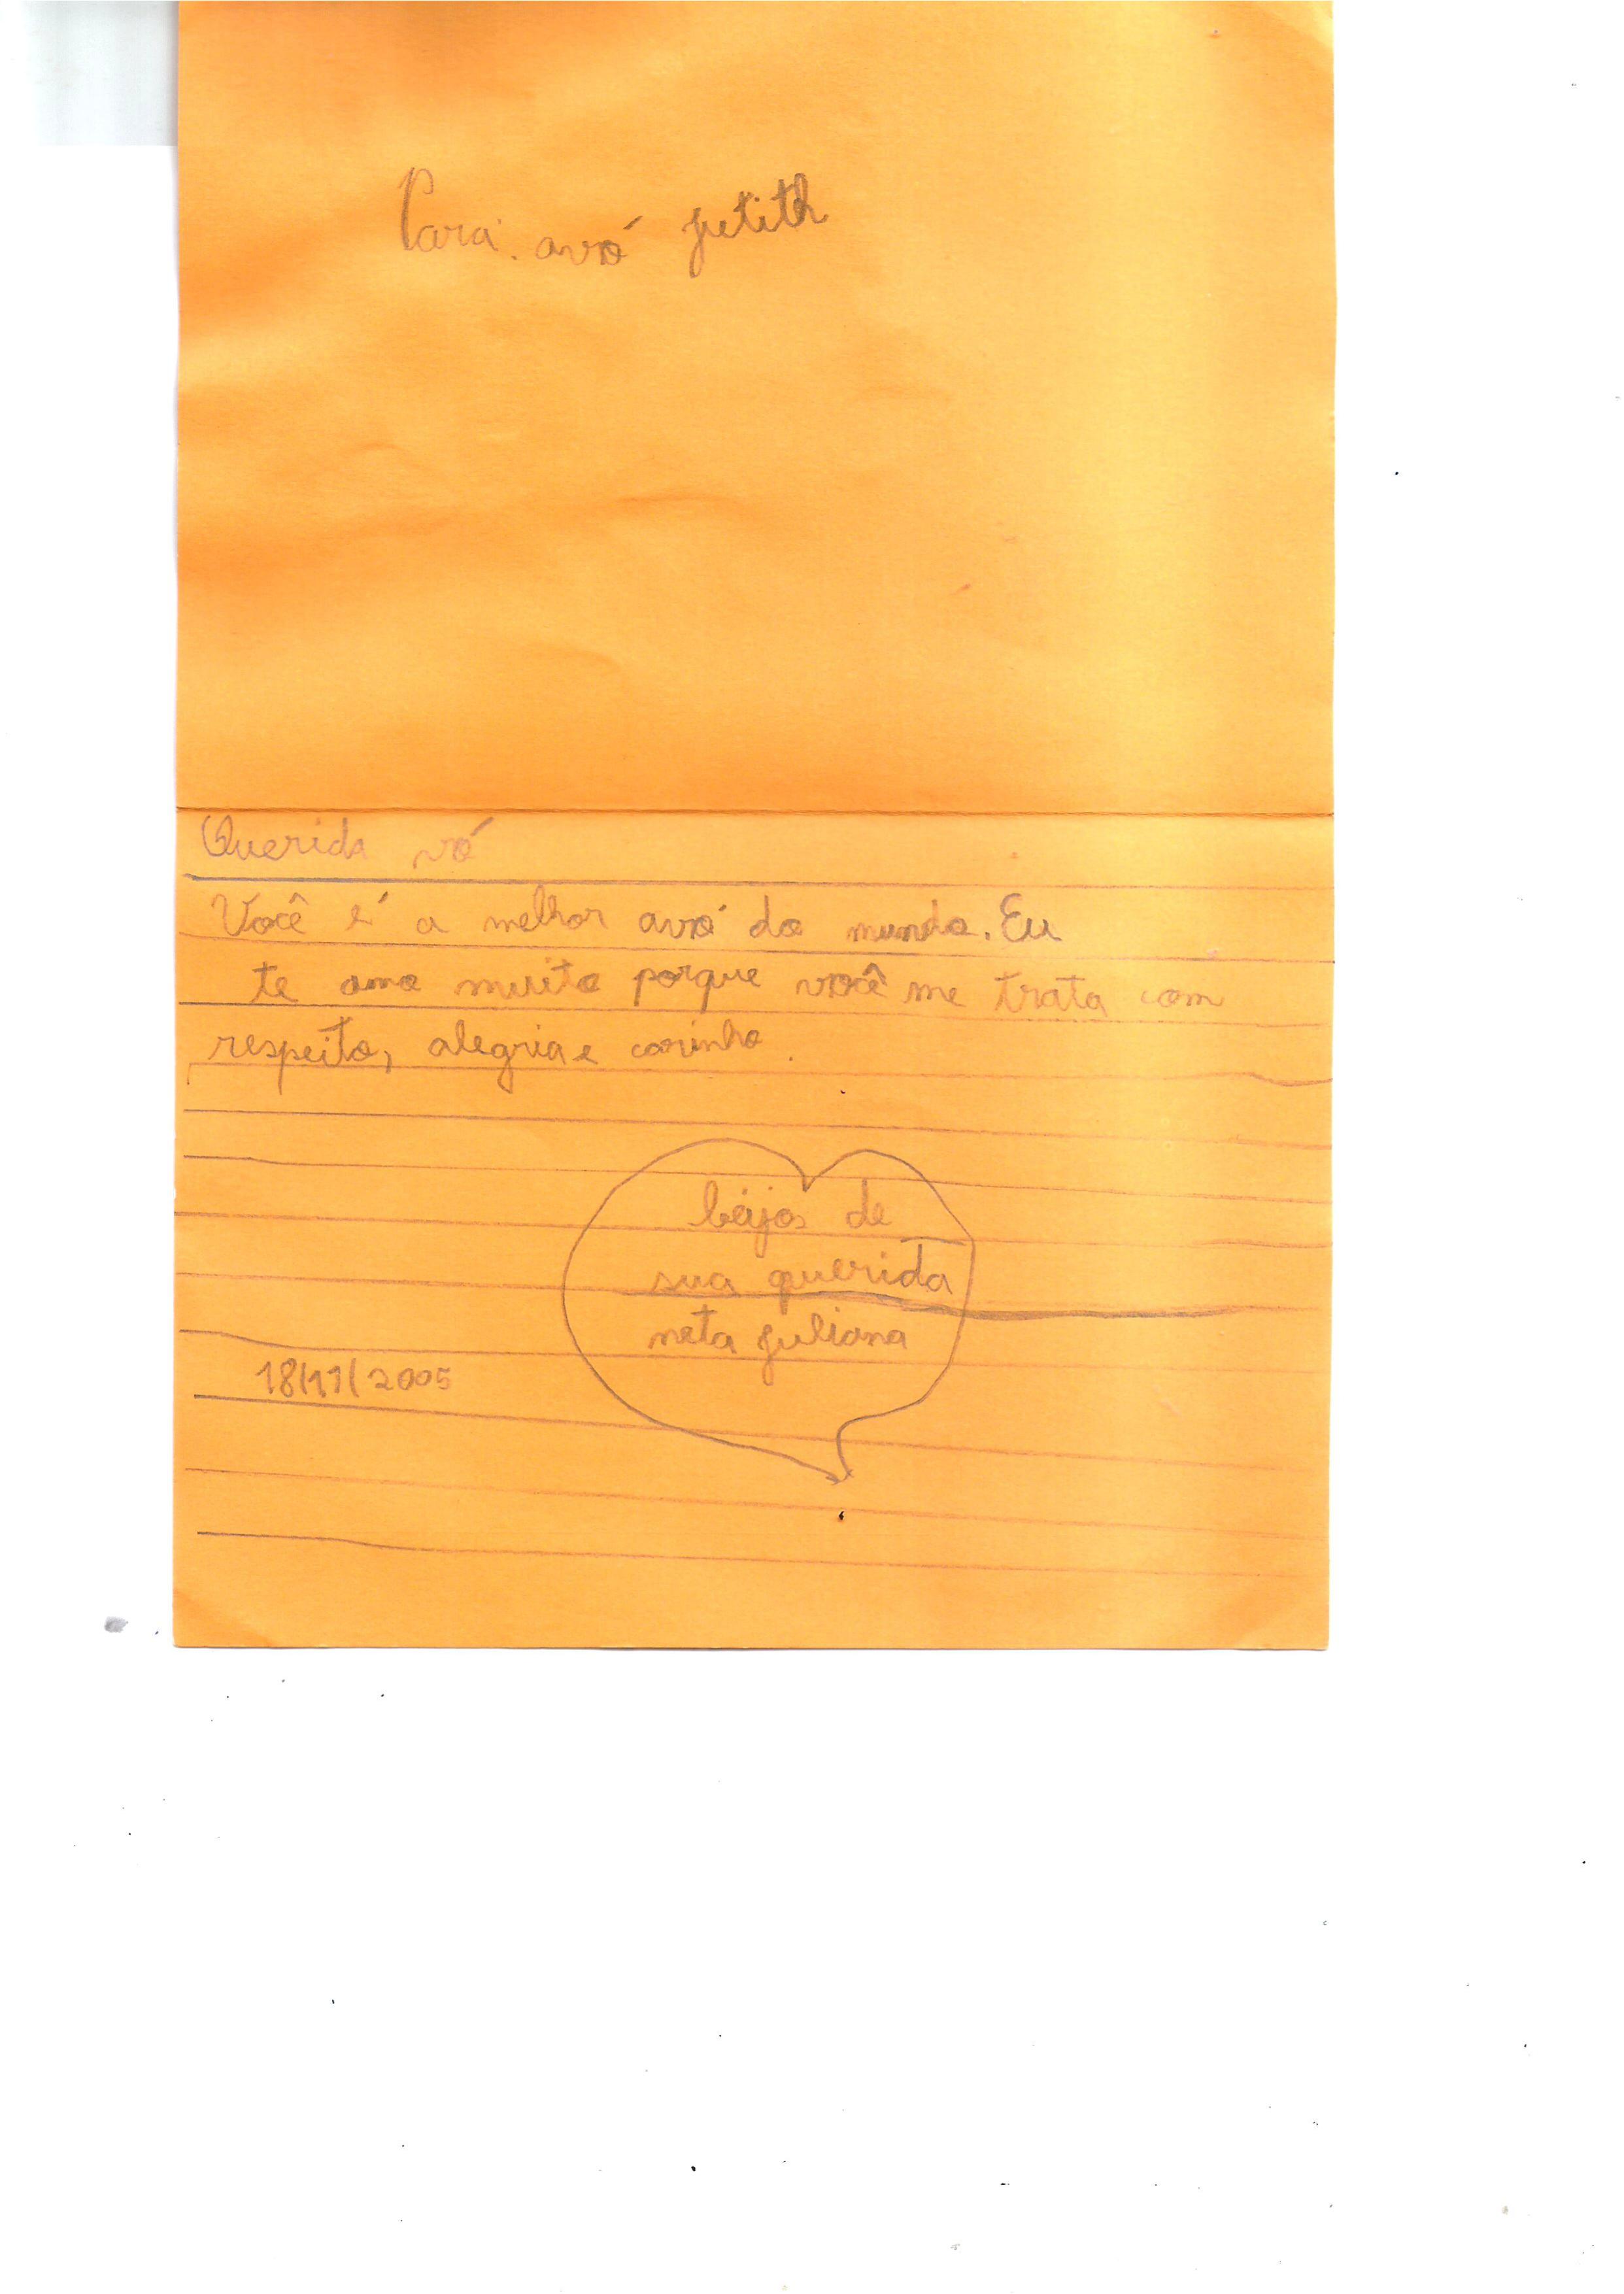 Para: avó jutith
Querida vó
Você é a melhor avó do mundo. Eu
te amo muito porque você me trata com
respeito, alegria e carinho.
beijos de
sua querida
neta juliana
18/11/2005